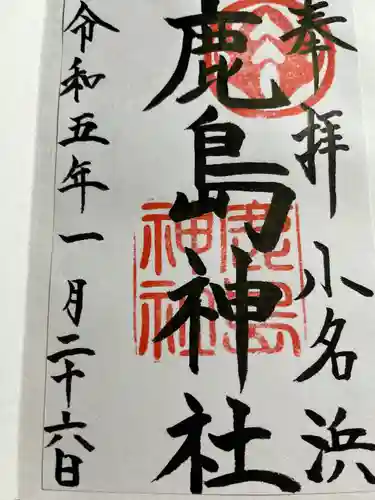 奉拝 小名浜
鹿島神社
鹿島
神社
令和五年一月二十六日